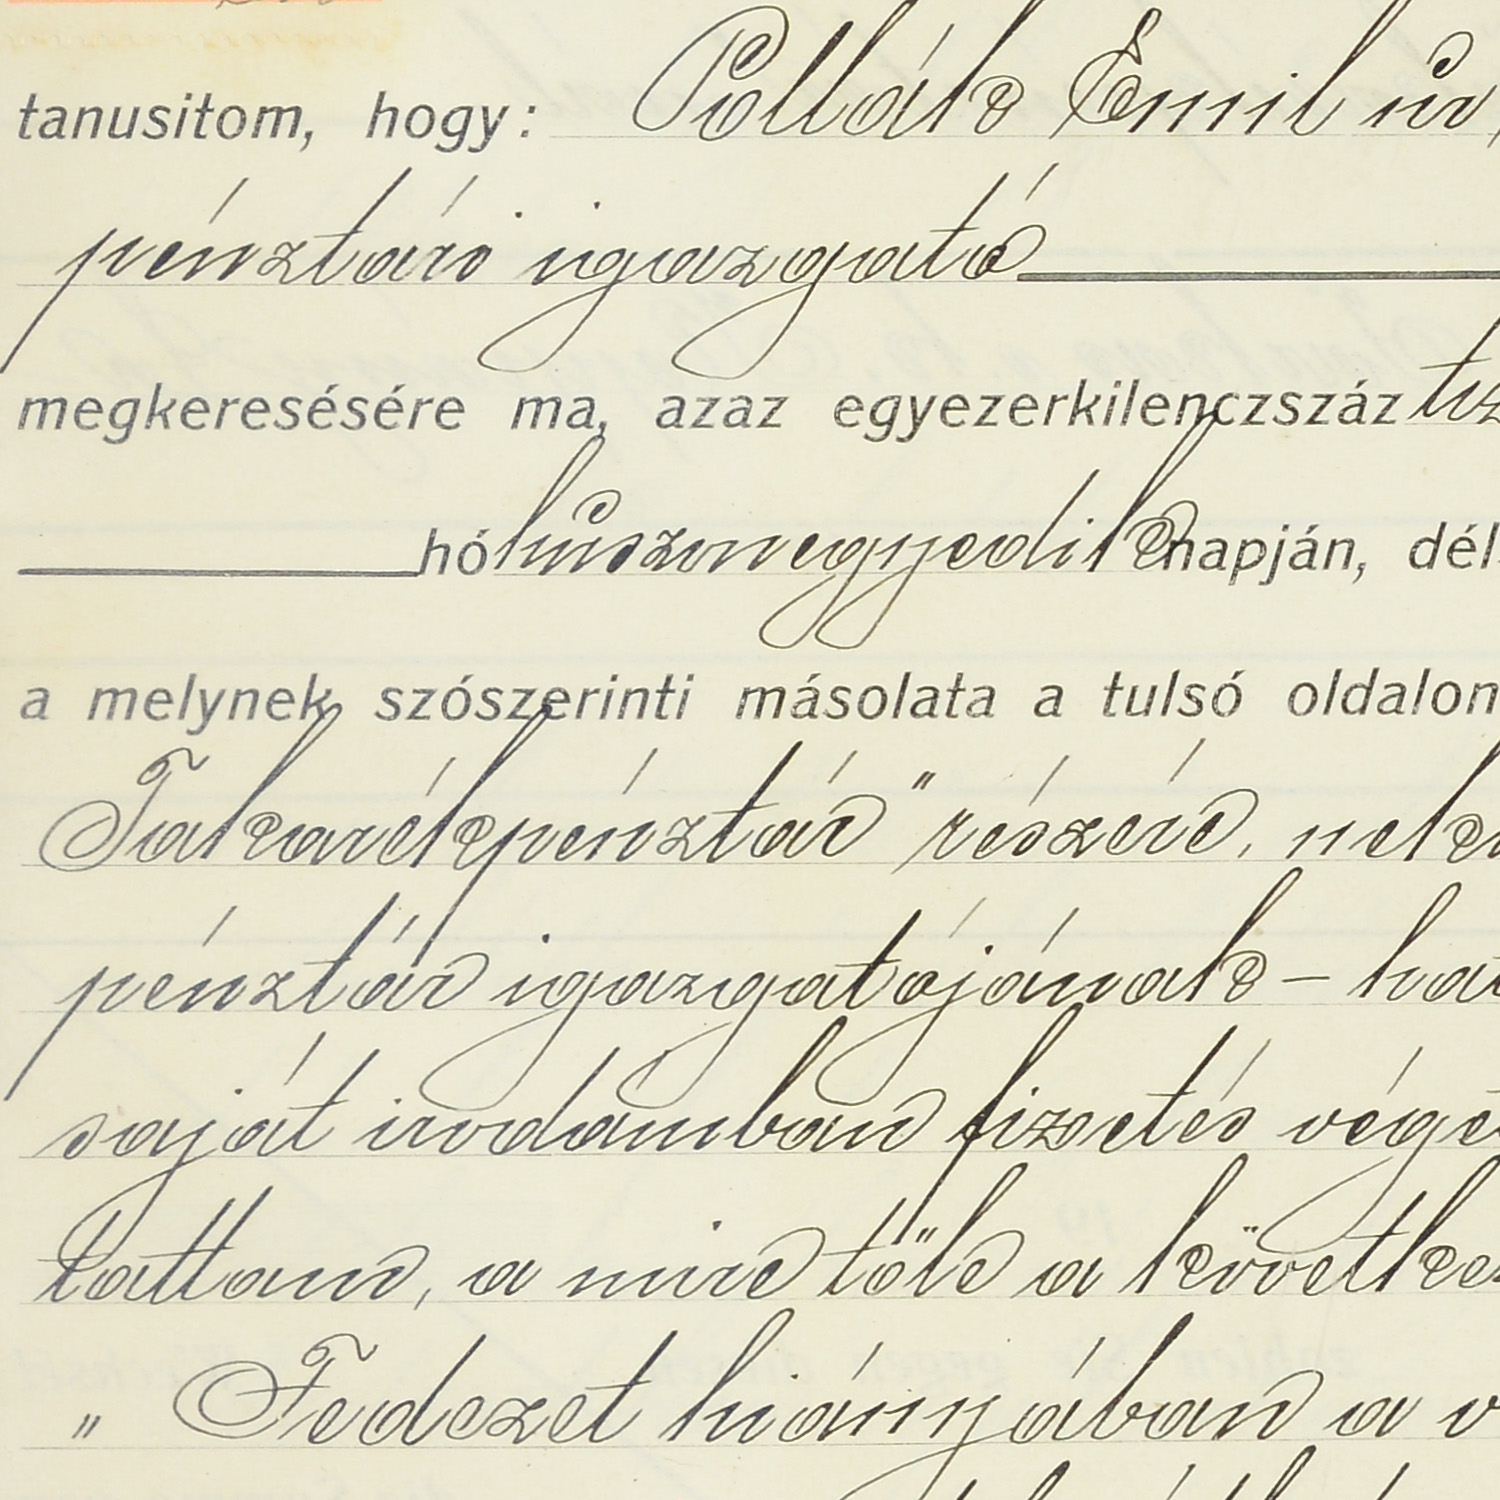 tanusitom, hogy: Pollák Emil úr,
pénztári igazgató
megkeresésére ma, azaz egyezerkilenczszáz tiz
hó huszonegyedik napján, dél
a melynek szószerinti másolata a tulsó oldalon
Takarékpénztár" részére, nek
pénztár igazgatójának - ha
saját irodámban fizetés végé
tattam, a mire tőle a követke
"Fedezet hiányában a v